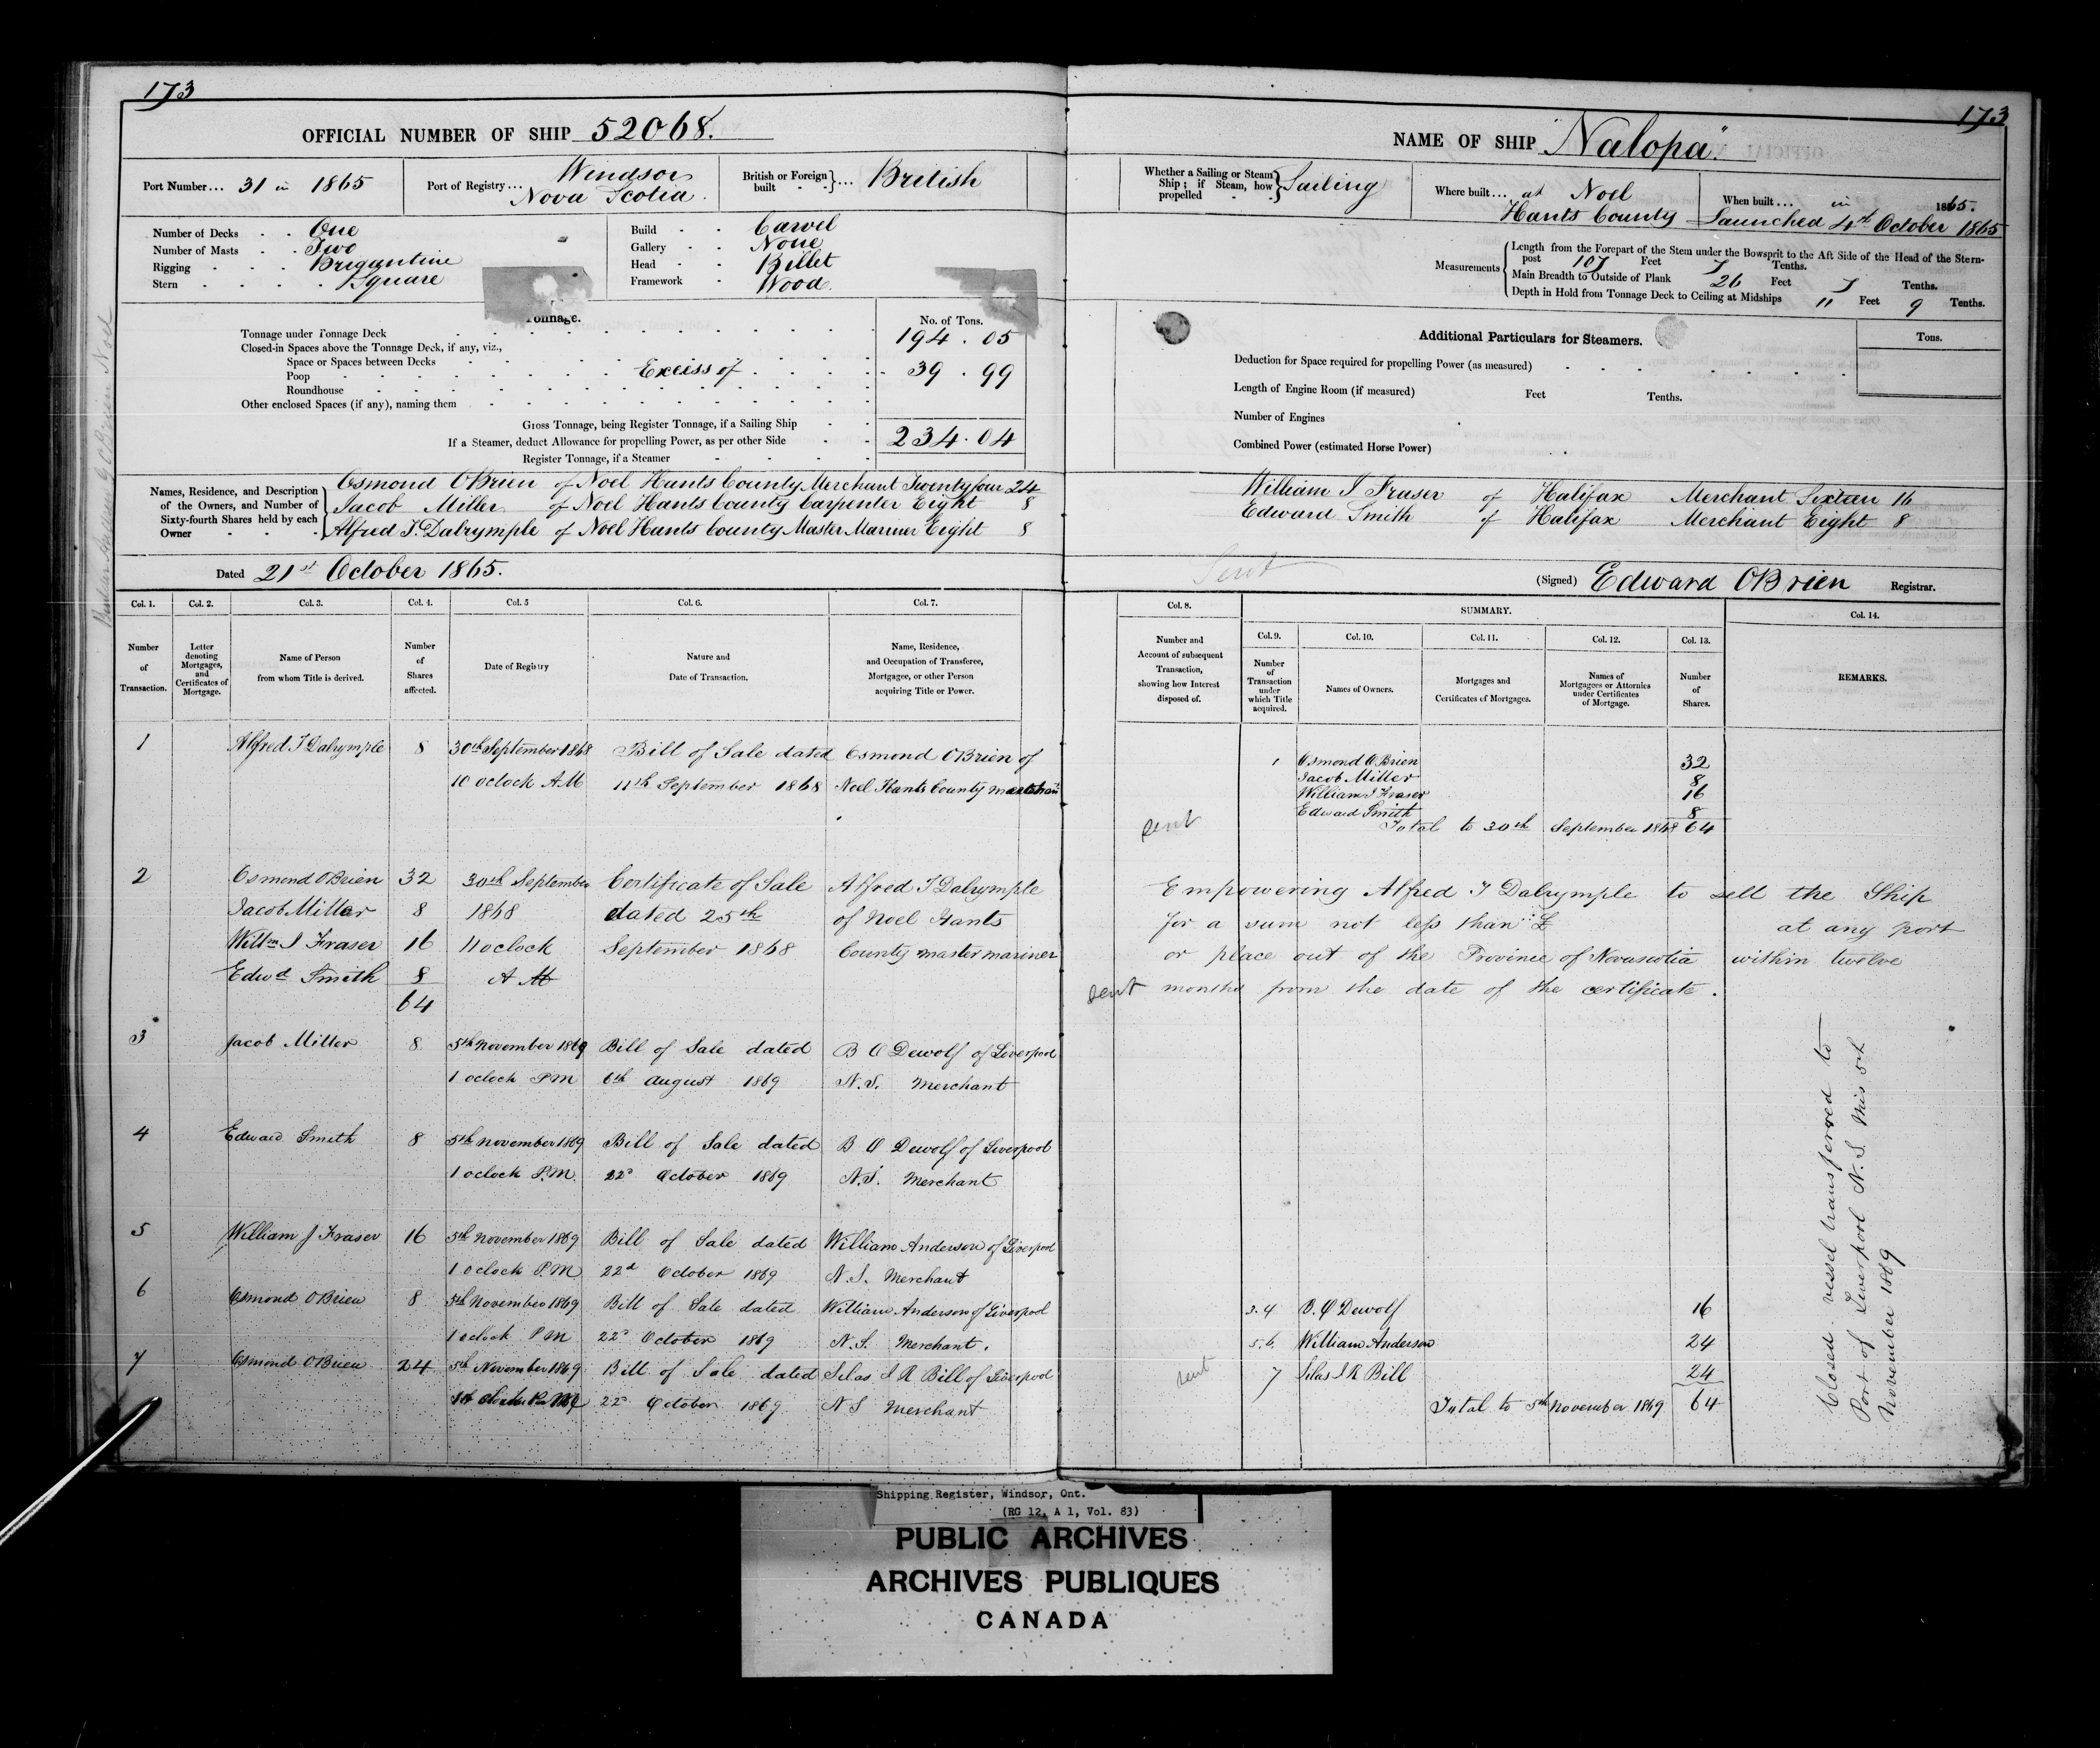 173
OFFICIAL NUMBER OF SHIP 52068.
Port Number... 31 in 1865
Port of Registry... Windsor
Nova Scotia.
British or Foreign built - -}... British
Number of Decks - - One
Number of Masts - - Two
Rigging - - - Brigantine
Stern - - - - Square
Build - - Carvel
Gallery - - None
Head - - Billet
Framework - Wood.
Tonnage.
No. of Tons.
Tonnage under Tonnage Deck 194 . 05
Closed-in Spaces above the Tonnage Deck, if any, viz.,
Space or Spaces between Decks
Poop Excess of 39 . 99
Roundhouse
Other enclosed Spaces (if any), naming them
Gross Tonnage, being Register Tonnage, if a Sailing Ship
If a Steamer, deduct Allowance for propelling Power, as per other Side 234 . 04
Register Tonnage, if a Steamer
Names, Residence, and Description of the Owners, and Number of Sixty-fourth Shares held by each Owner
Osmond OBrien of Noel Hants County Merchant Twenty four 24
Jacob Miller of Noel Hants County Carpenter Eight 8
Alfred T. Dalrymple of Noel Hants County Master Mariner Eight 8
Dated 21st October 1865.
Col. 1. Col. 2. Col. 3. Col. 4. Col. 5 Col. 6. Col. 7.
Number of Transaction.
Letter denoting Mortgages, and Certificates of Mortgage.
Name of Person from whom Title is derived.
Number of Shares affected.
Date of Registry.
Nature and Date of Transaction.
Name, Residence, and Occupation of Transferee, Mortgagee, or other Person acquiring Title or Power.
1 Alfred T Dalrymple 8 30th September 1868 Bill of Sale dated Osmond OBrien of
10 oclock AM 11th September 1868 Noel Hants County merchant
2 Osmond OBrien 32 30th September Certificate of Sale Alfred T Dalrymple
Jacob Miller 8 1868 dated 25th of Noel Hants
Willm J Fraser 16 11 oclock September 1868 County master mariner
Edwd Smith 8 A M
64
3 Jacob Miller 8 5th November 1869 Bill of Sale dated B O Dewolf of Liverpool
1 oclock PM 6th August 1869 N.S. Merchant
4 Edward Smith 8 5th November 1869 Bill of Sale dated B O Dewolf of Liverpool
1 oclock P.M. 22d October 1869 N.S. Merchant
5 William J Fraser 16 5th November 1869 Bill of Sale dated William Anderson of Liverpool
1 oclock P.M 22d October 1869 N.S. Merchant
6 Osmond OBrien 8 5th November 1869 Bill of Sale dated William Anderson of Liverpool
1 oclock P M 22d October 1869 N.S. Merchant.
7 Osmond OBrien 24 5th November 1869 Bill of Sale dated Silas J R Bill of Liverpool
22d October 1869 N S Merchant
173
NAME OF SHIP "Nalopa".
Whether a Sailing or Steam Ship; if Steam, how propelled } Sailing
Where built... at Noel
Hants County
When built... in 1865.
Launched 4th October 1865
Measurements
Length from the Forepart of the Stem under the Bowsprit to the Aft Side of the Head of the Stern-
post 107 Feet 7 Tenths.
Main Breadth to Outside of Plank 26 Feet 7 Tenths.
Depth in Hold from Tonnage Deck to Ceiling at Midships 11 Feet 9 Tenths.
Additional Particulars for Steamers.
Tons.
Deduction for Space required for propelling Power (as measured)
Length of Engine Room (if measured) Feet Tenths.
Number of Engines
Combined Power (estimated Horse Power)
William J Fraser of Halifax Merchant Sixteen 16
Edward Smith of Halifax Merchant Eight 8
Sent
(Signed) Edward OBrien Registrar.
Col. 8. SUMMARY. Col. 14.
Col. 9. Col. 10. Col. 11. Col. 12. Col. 13.
Number and Account of subsequent Transaction, showing how Interest disposed of.
Number of Transaction under which Title acquired.
Names of Owners.
Mortgages and Certificates of Mortgages.
Names of Mortgagees or Attornies under Certificates of Mortgage.
Number of Shares.
REMARKS.
1 Osmond OBrien 32
Jacob Miller 8
William J Fraser 16
Edward Smith 8
sent Total to 30th September 1868 64
Empowering Alfred T Dalrymple to sell the Ship
for a sum not less than £ at any port
or place out of the Province of Novascotia within twelve
sent months from the date of the certificate.
3.4 B. O Dewolf 16
5.6. William Anderson 24
sent 7 Silas J R Bill 24
Total to 5th November 1869 64
Closed. vessel transferred to
Port of Liverpool N.S. this 5th
November 1869
Shipping Register, Windsor, Ont.
(RG 12, A 1, Vol. 83)
PUBLIC ARCHIVES
ARCHIVES PUBLIQUES
CANADA